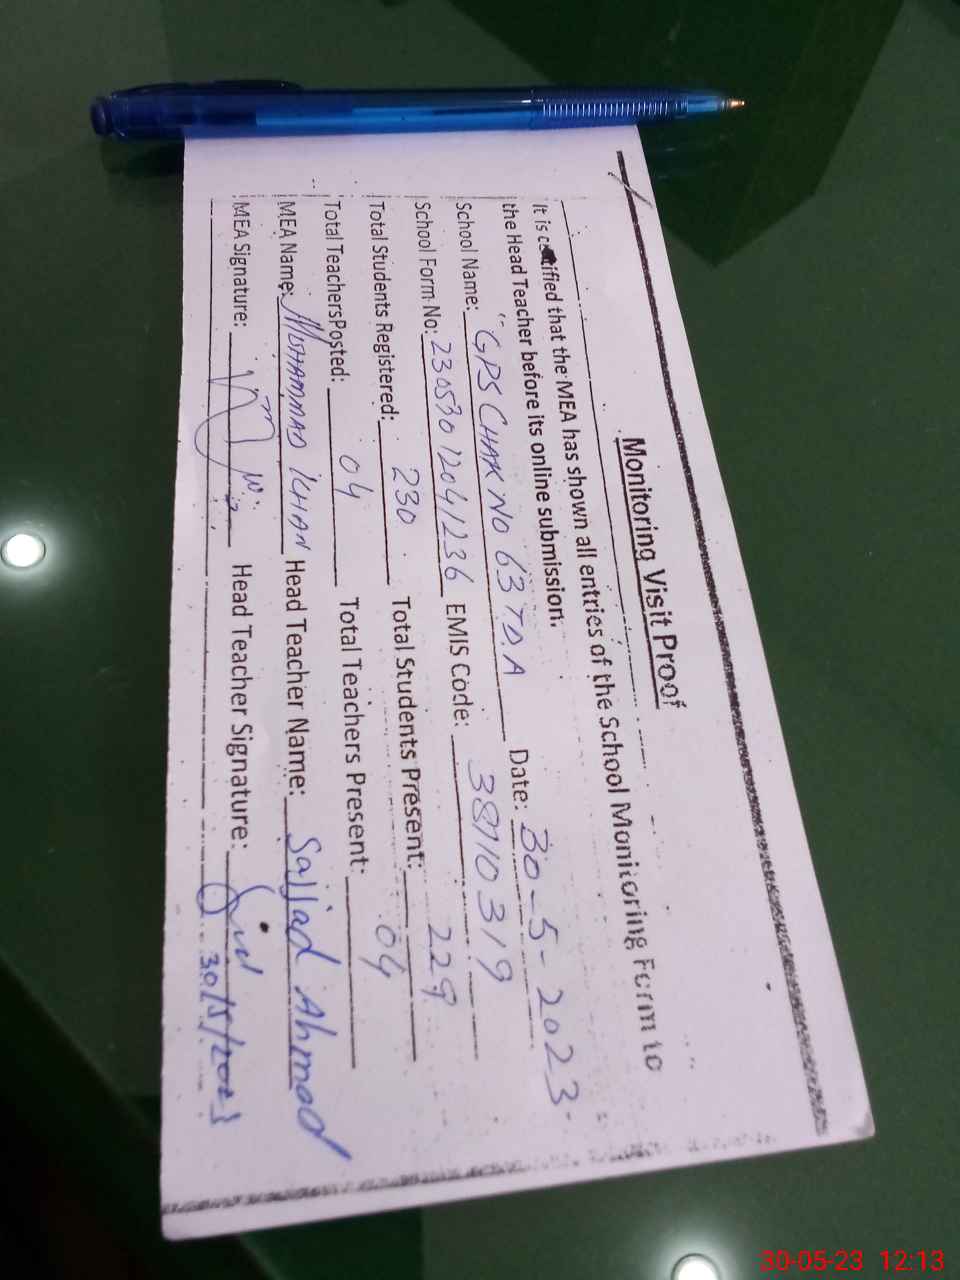 Monitoring Visit Proof
It is certified that the MEA has shown all entries of the School Monitoring Form to
the Head Teacher before its online submission.
School Name: "GPS CHAK NO 63 TDA Date: 30-5-2023
School Form No: 230530 1204 1236 EMIS Code: 38710319
Total Students Registered: 230 Total Students Present: 229
Total TeachersPosted: 04 Total Teachers Present: 04
MEA Name: MUHAMMAD KHAN Head Teacher Name: Sajjad Ahmad
MEA Signature: Head Teacher Signature:
30/5/2023
30-05-23 12:13